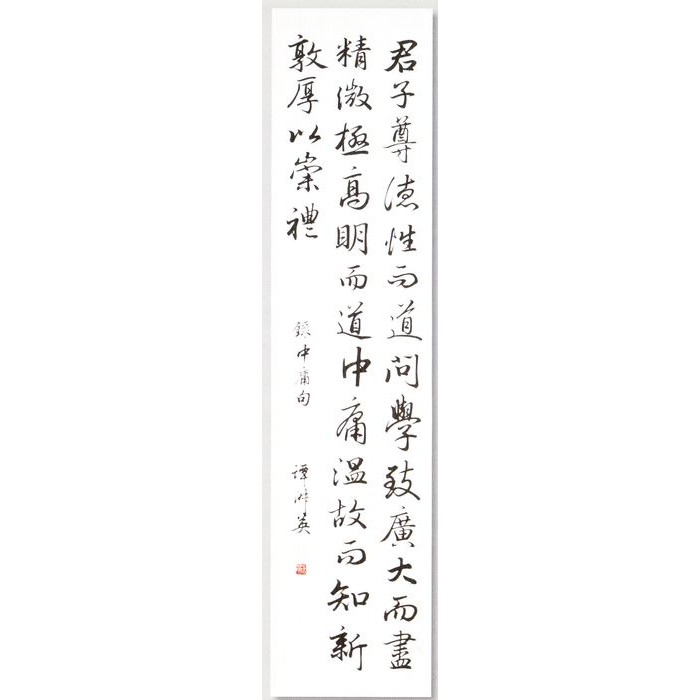 君子尊德性而道問學致廣大而盡
精微極高明而道中庸溫故而知新
敦厚以崇禮
錄中庸句
譚 英